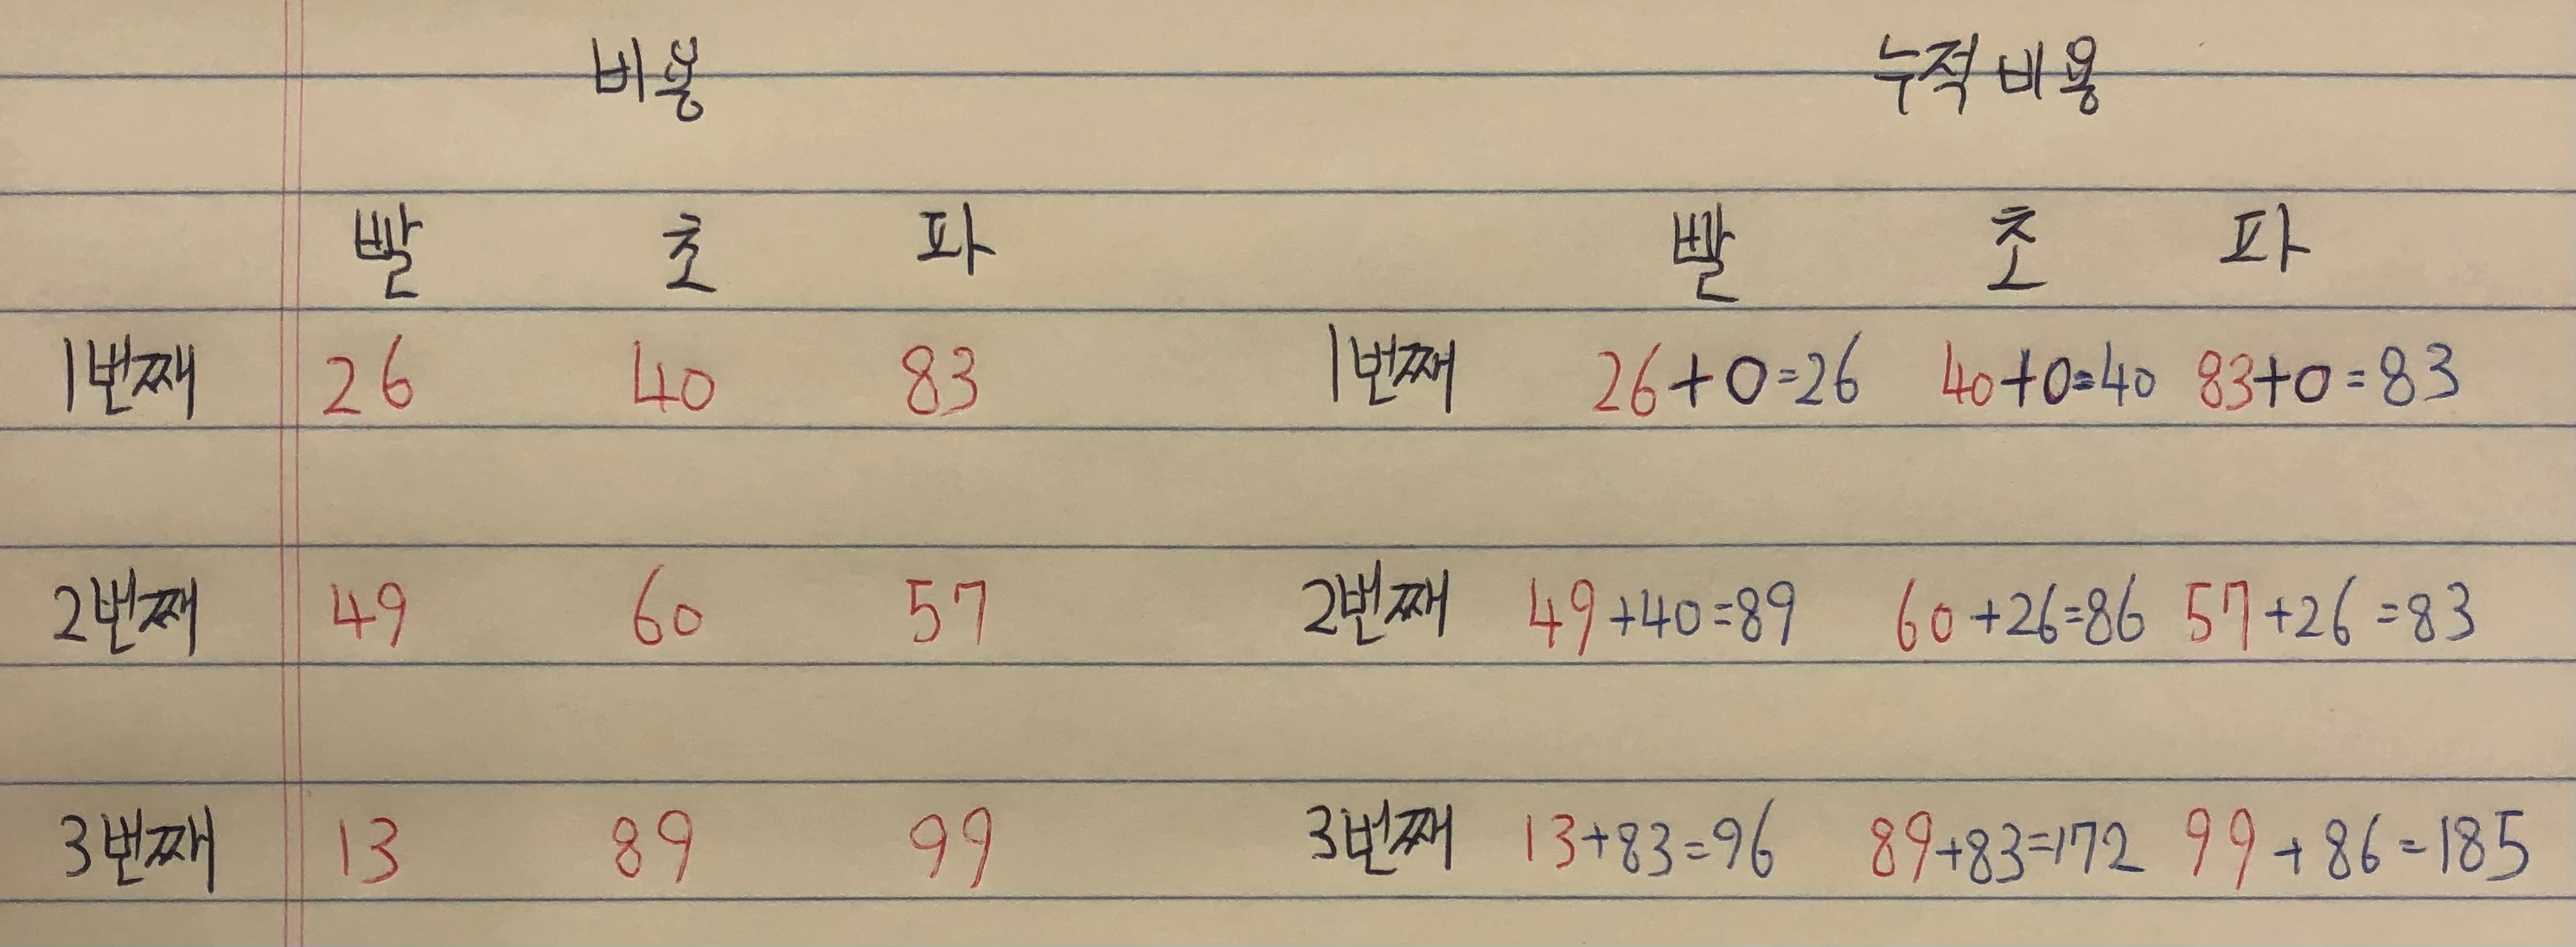 비용 누적 비용
빨 초 파 빨 초 파
1번째 26 40 83 1번째 26+0=26 40+0=40 83+0=83
2번째 49 60 57 2번째 49+40=89 60+26=86 57+26=83
3번째 13 89 99 3번째 13+83=96 89+83=172 99+86=185